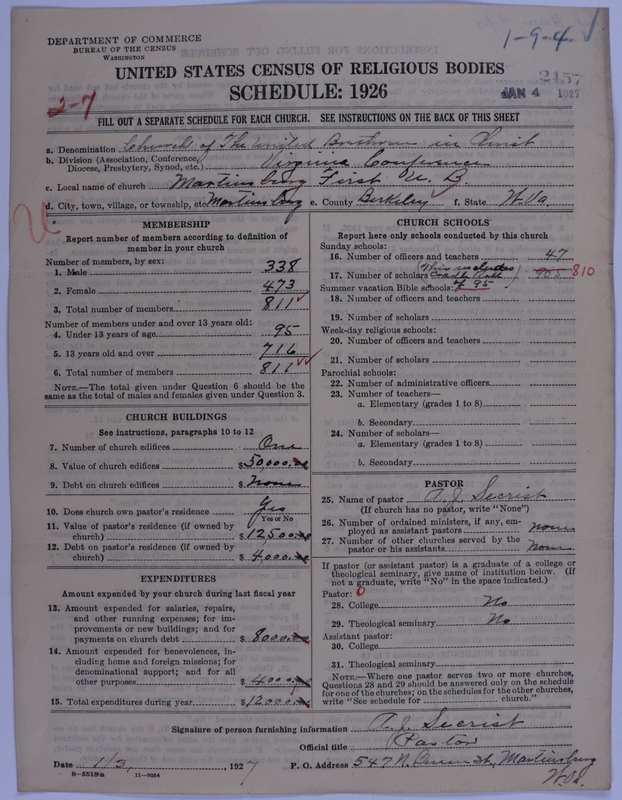 DEPARTMENT OF COMMERCE
BUREAU OF THE CENSUS
WASHINGTON
1-9-4
UNITED STATES CENSUS OF RELIGIOUS BODIES
SCHEDULE: 1926
2457
JAN 4 1927
2-7
FILL OUT A SEPARATE SCHEDULE FOR EACH CHURCH. SEE INSTRUCTIONS ON THE BACK OF THIS SHEET
a. Denomination Church of The United Brethren in Christ
b. Division (Association, Conference, Diocese, Presbytery, Synod, etc.) Virginia Conference
c. Local name of church Martinsburg First U. B.
d. City, town, village, or township, etc. Martinsburg e. County Berkeley f. State W. Va.
MEMBERSHIP
Report number of members according to definition of
member in your church
Number of members, by sex:
1. Male 338
2. Female 473
3. Total number of members 811
Number of members under and over 13 years old:
4. Under 13 years of age 95
5. 13 years old and over 716
6. Total number of members 811
NOTE.—The total given under Question 6 should be the
same as the total of males and females given under Question 3.
CHURCH BUILDINGS
See instructions, paragraphs 10 to 12
7. Number of church edifices One
8. Value of church edifices $50,000.00
9. Debt on church edifices $None
10. Does church own pastor's residence Yes
Yes or No
11. Value of pastor's residence (if owned by
church) $12500.00
12. Debt on pastor's residence (if owned by
church) $4000.00
EXPENDITURES
Amount expended by your church during last fiscal year
13. Amount expended for salaries, repairs,
and other running expenses; for im-
provements or new buildings; and for
payments on church debt $8000.00
14. Amount expended for benevolences, in-
cluding home and foreign missions; for
denominational support; and for all
other purposes $4000.00
15. Total expenditures during year $12000.00
CHURCH SCHOOLS
Report here only schools conducted by this church
Sunday schools:
16. Number of officers and teachers 47
17. Number of scholars (This includes Cradle Roll of 95) 810
Summer vacation Bible schools:
18. Number of officers and teachers
19. Number of scholars
Week-day religious schools:
20. Number of officers and teachers
21. Number of scholars
Parochial schools:
22. Number of administrative officers
23. Number of teachers—
a. Elementary (grades 1 to 8)
b. Secondary
24. Number of scholars—
a. Elementary (grades 1 to 8)
b. Secondary
PASTOR
25. Name of pastor A. J. Secrist
(If church has no pastor, write "None")
26. Number of ordained ministers, if any, em-
ployed as assistant pastors None
27. Number of other churches served by the
pastor or his assistants None
If pastor (or assistant pastor) is a graduate of a college or
theological seminary, give name of institution below. (If
not a graduate, write "No" in the space indicated.)
Pastor: 0
28. College No
29. Theological seminary No
Assistant pastor:
30. College
31. Theological seminary
NOTE.—Where one pastor serves two or more churches,
Questions 28 and 29 should be answered only on the schedule
for one of the churches; on the schedules for the other churches,
write "See schedule for church."
Signature of person furnishing information A. J. Secrist
Official title Pastor
Date 1/3, 1927 P. O. Address 547 N. Queen St., Martinsburg
W. Va.
8-5518a 11-9264